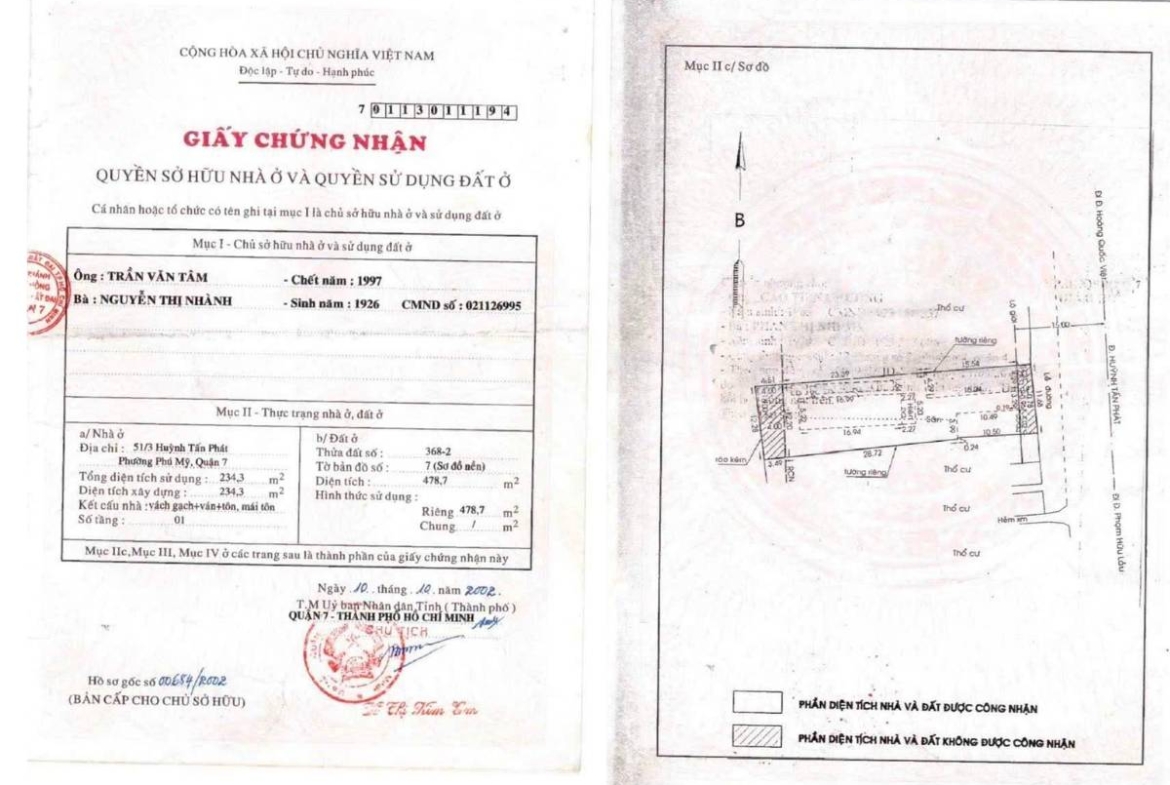 CỘNG HÒA XÃ HỘI CHỦ NGHĨA VIỆT NAM
Độc lập - Tự do - Hạnh phúc
7 0 1 1 3 0 1 1 1 9 4
GIẤY CHỨNG NHẬN
QUYỀN SỞ HỮU NHÀ Ở VÀ QUYỀN SỬ DỤNG ĐẤT Ở
Cá nhân hoặc tổ chức có tên ghi tại mục I là chủ sở hữu nhà ở và sử dụng đất ở
Mục I - Chủ sở hữu nhà ở và sử dụng đất ở
Ông : TRẦN VĂN TÂM - Chết năm : 1997
Bà : NGUYỄN THỊ NHÀNH - Sinh năm : 1926 CMND số : 021126995
Mục II - Thực trạng nhà ở, đất ở
a/ Nhà ở
Địa chỉ : 51/3 Huỳnh Tấn Phát
Phường Phú Mỹ, Quận 7
Tổng diện tích sử dụng : 234,3 m2
Diện tích xây dựng : 234,3 m2
Kết cấu nhà :vách gạch+ván+tôn, mái tôn
Số tầng : 01
b/ Đất ở
Thửa đất số : 368-2
Tờ bản đồ số : 7 (Sơ đồ nền)
Diện tích : 478,7 m2
Hình thức sử dụng :
Riêng 478,7 m2
Chung / m2
Mục IIc,Mục III, Mục IV ở các trang sau là thành phần của giấy chứng nhận này
Ngày 10 . tháng . 10 . năm 2002.
T.M Uỷ ban Nhân dân Tỉnh ( Thành phố )
QUẬN 7 - THÀNH PHỐ HỒ CHÍ MINH
CHỦ TỊCH
Hồ sơ gốc số 00684/2002
(BẢN CẤP CHO CHỦ SỞ HỮU)
Mục II c/ Sơ đồ
B
Đi Đ. Hoàng Quốc Việt
Thổ cư
Lộ giới
tường riêng
15.54
Đ. HUỲNH TẤN PHÁT
Lề đường
Sân
16.94
2.27
10.49
10.50
0.24
28.72
3.49
rào kẽm
tường riêng
Thổ cư
Thổ cư
Hẻm xm
Thổ cư
Đi Đ. Phạm Hữu Lầu
PHẦN DIỆN TÍCH NHÀ VÀ ĐẤT ĐƯỢC CÔNG NHẬN
PHẦN DIỆN TÍCH NHÀ VÀ ĐẤT KHÔNG ĐƯỢC CÔNG NHẬN